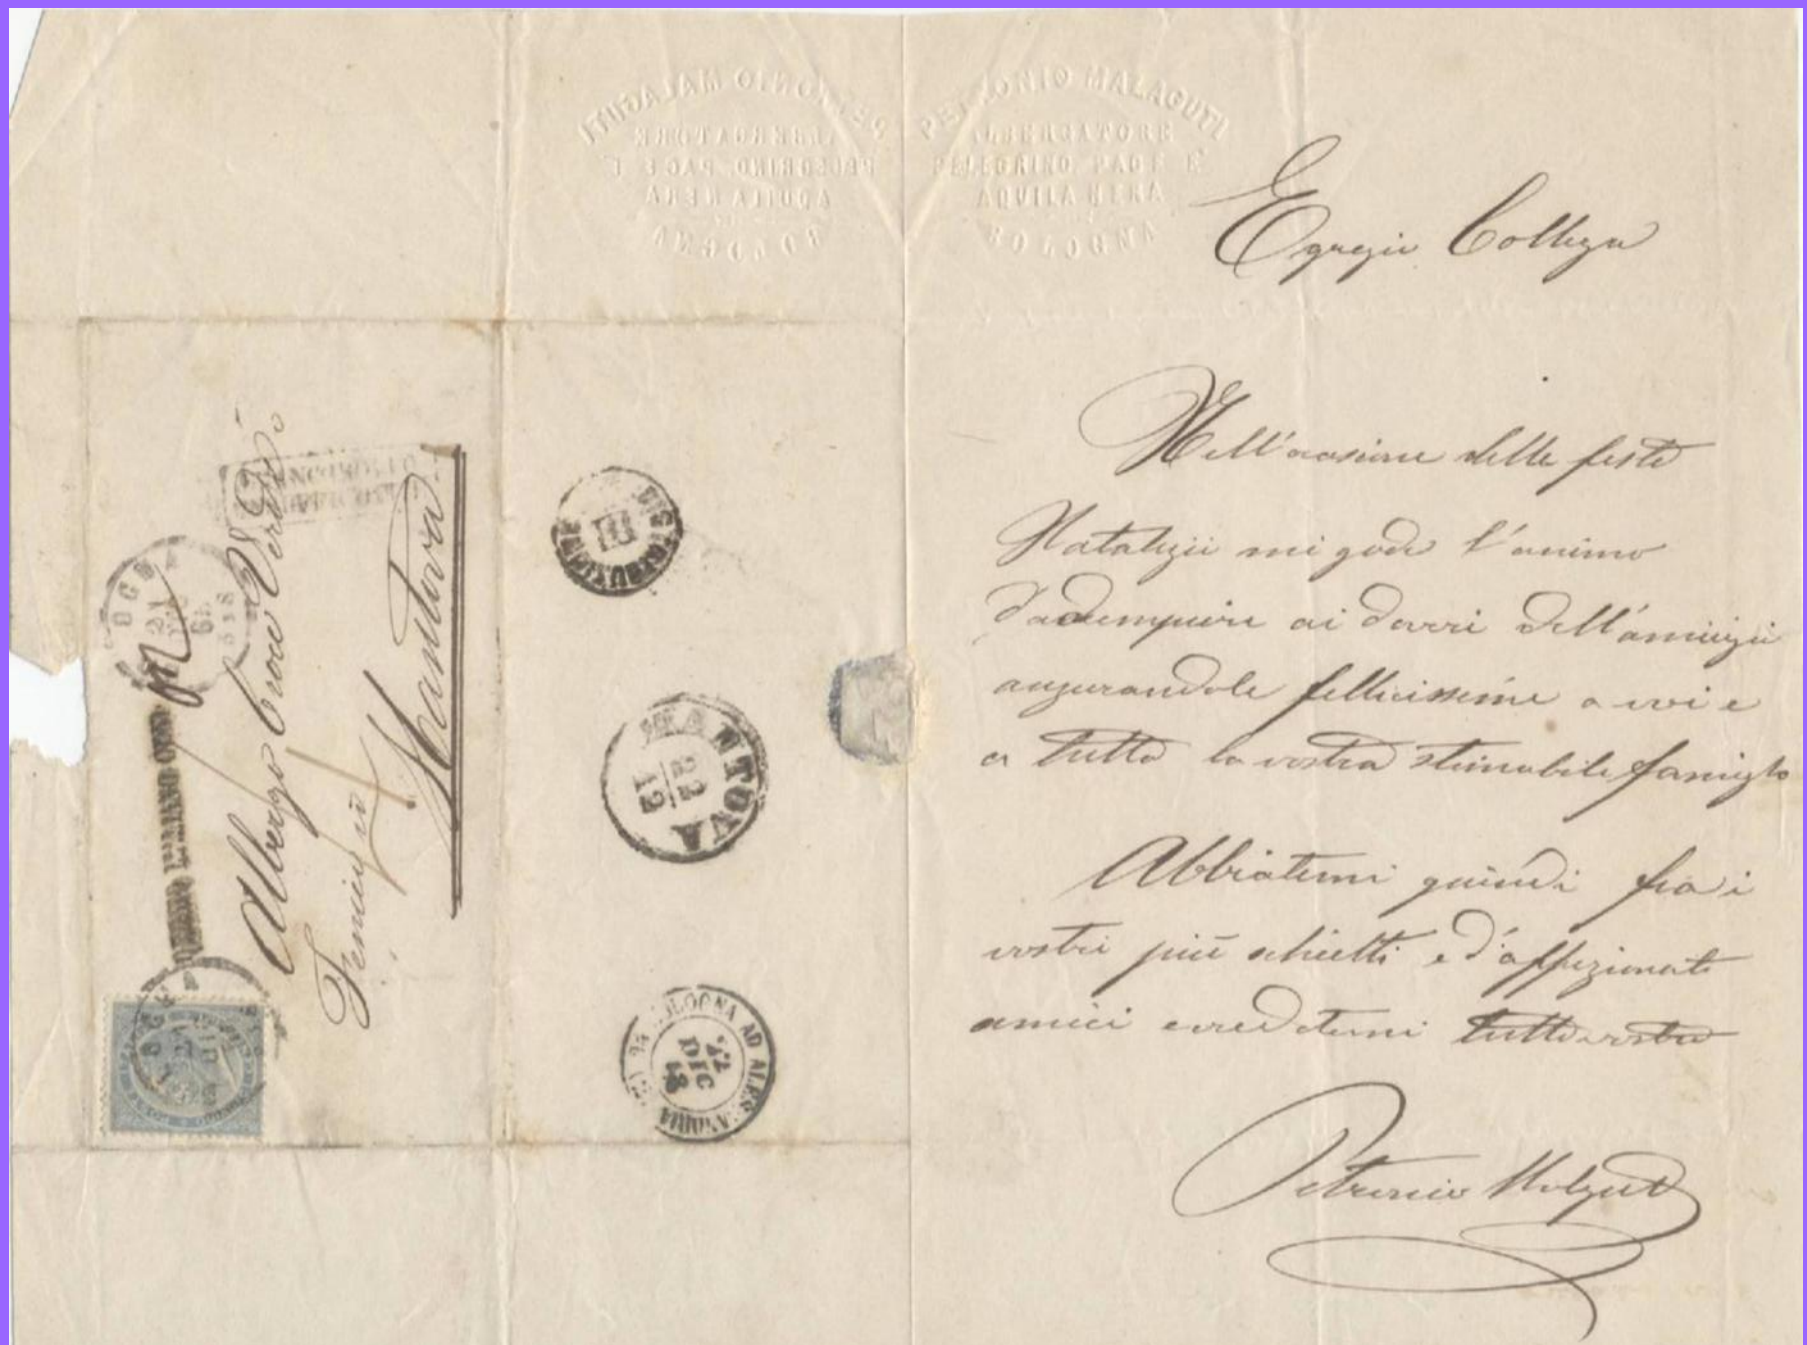 PETRONIO MALAGUTI
ALBERGATORE
PELLEGRINO PACE E
AQUILA NERA
BOLOGNA
Egregio Collega
Nell'occasione delle feste
Natalizie mi gode l'animo
d'adempiere ai doveri dell'amicizia
augurandole fellicissime a voi e
a tutta la vostra stimabile famiglia
Abbiatemi quindi fra i
vostri più schietti e d'affezionati
amici e credetemi tutto vostro
Petronio Malaguti
Albergo Croce Verde
Fenice
Mantova
DISTRIBUZIONE
III
MANTOVA
22
12
BOLOGNA AD ALESSANDRIA
22
DIC